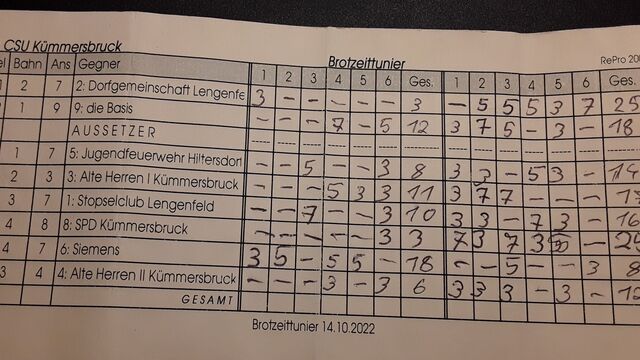 CSU Kümmersbruck Brotzeittunier RePro 200
Bahn Ans Gegner 1 2 3 4 5 6 Ges. 1 2 3 4 5 6 Ges.
1 2 7 2: Dorfgemeinschaft Lengenfe 3 - - - - - 3 - 5 5 5 3 7 25
2 1 9 9: die Basis - - - 7 - 5 12 3 7 5 - 3 - 18
AUSSETZER
1 7 5: Jugendfeuerwehr Hiltersdorf - - 5 - - 3 8 3 3 - 5 3 - 14
2 3 3: Alte Herren I Kümmersbruck - - - 5 3 3 11 3 7 7 - - - 17
1 7 1: Stopselclub Lengenfeld - - 7 - - 3 10 3 3 - 7 3 - 16
4 8 8: SPD Kümmersbruck - - - - - 3 3 7 3 7 3 -
4 7 6: Siemens 3 5 - 5 5 - 18 - - 5 - - 3 8
3 4 4: Alte Herren II Kümmersbruck - - - 3 - 3 6 3 3 3 - 3 -
GESAMT
Brotzeittunier 14.10.2022